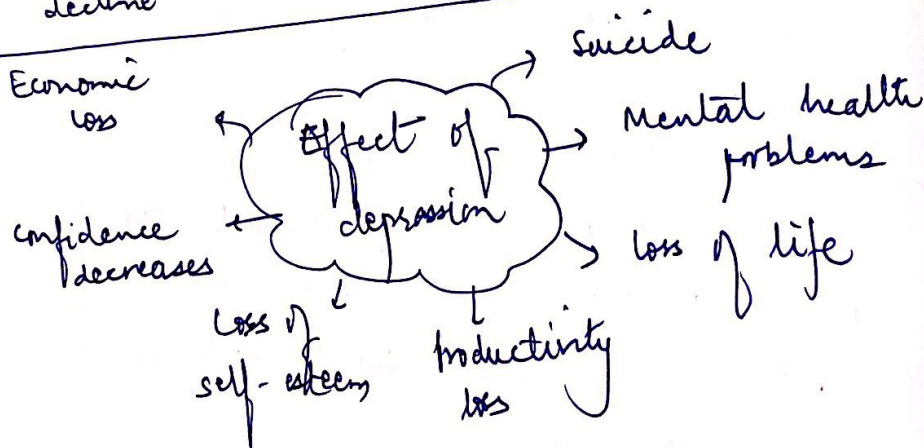 decline
Economic
loss
Effect of
depression
Suicide
Mental health
problems
loss of life
Productivity
loss
Loss of
self-esteem
confidence
decreases